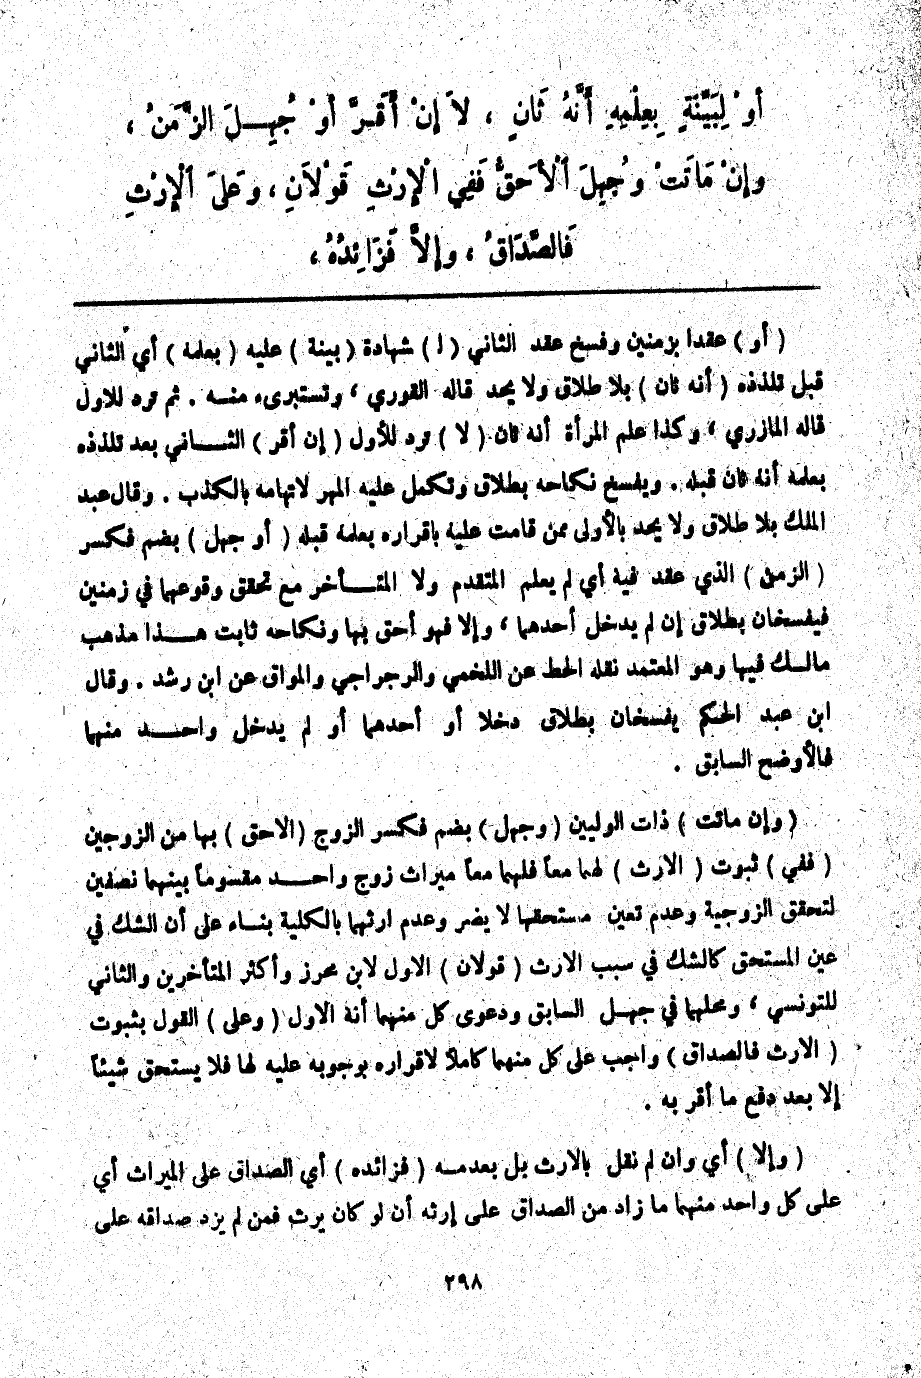 أوْ لِبَيِّنَةٍ بِعِلْمِهِ أَنَّهُ ثَانٍ ، لاَ إنْ أَقَرَّ أوْ جُهِلَ الزَّمَنُ ،
وإنْ مَاتَتْ وجُهِلَ ٱلْأَحَقُّ فَفِي الْإِرْثِ قَوْلاَنِ ، وعَلَى ٱلْإِرْثِ
فَالصَّدَاقُ ، وإلاَّ فَزَائِدُهُ ،
( أو ) عقدا بزمنين وفسخ عقد الثاني ( لـ ) شهادة ( بينة ) عليه ( بعلمه ) أي الثاني
قبل تلذذه ( أنه ثان ) بلا طلاق ولا يحد قاله القوري ، وتستبرىء منه . ثم ترد للاول
قاله المازري ، وكذا علم المرأة أنه ثان ( لا ) ترد للأول ( إن أقر ) الثاني بعد تلذذه
بعلمه أنه ثان قبله . ويفسخ نكاحه بطلاق وتكمل عليه المهر لاتهامه بالكذب . وقال عبد
الملك بلا طلاق ولا يحد بالأولى ممن قامت عليه باقراره بعلمه قبله ( أو جهل ) بضم فكسر
( الزمن ) الذي عقد فيه أي لم يعلم المتقدم ولا المتأخر مع تحقق وقوعهما في زمنين
فيفسخان بطلاق إن لم يدخل أحدهما ، وإلا فهو أحق بها ونكاحه ثابت هذا مذهب
مالك فيها وهو المعتمد نقله الحط عن اللخمي والرجراجي والمواق عن ابن رشد . وقال
ابن عبد الحكم يفسخان بطلاق دخلا أو أحدهما أو لم يدخل واحد منهما
فالأوضح السابق .
( وإن ماتت ) ذات الوليين ( وجهل ) بضم فكسر الزوج ( الاحق ) بها من الزوجين
( ففي ) ثبوت ( الارث ) لهما معاً فلهما معاً ميراث زوج واحد مقسوماً بينهما نصفين
لتحقق الزوجية وعدم تعين مستحقها لا يضر وعدم ارثهما بالكلية بناء على أن الشك في
عين المستحق كالشك في سبب الارث ( قولان ) الاول لابن محرز وأكثر المتأخرين والثاني
للتونسي ، ومحلهما في جهل السابق ودعوى كل منهما أنه الاول ( وعلى ) القول بثبوت
( الارث فالصداق ) واجب على كل منهما كاملاً لاقراره بوجوبه عليه لها فلا يستحق شيئاً
إلا بعد دفع ما أقر به .
( وإلا ) أي وان لم نقل بالارث بل بعدمه ( فزائده ) أي الصداق على الميراث أي
على كل واحد منهما ما زاد من الصداق على إرثه أن لو كان يرث فمن لم يزد صداقه على
٢٩٨